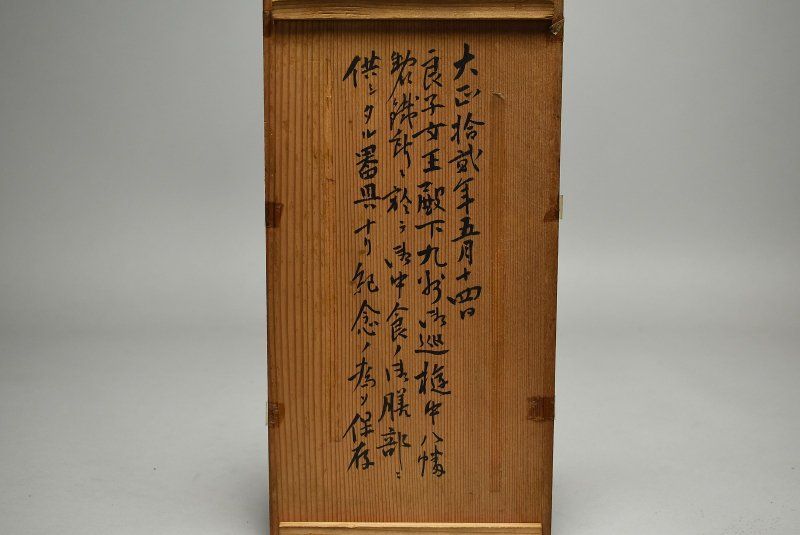 大正拾貮年五月十四日
良子女王殿下九州御巡遊中八幡
製鐵所ニ於テ御中食ノ御膳部ニ
供シタル器具ナリ紀念ノ為メ保存